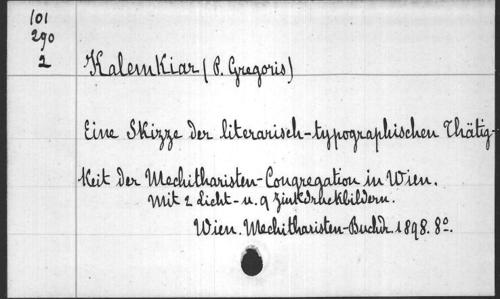 101
290
2
Kalemkiar (P. Gregoris)
Eine Skizze der literarisch-typographischen Thätig-
keit der Mechitharisten-Congregation in Wien.
Mit 2 Licht- u. 9 Zinkdruckbildern.
Wien. Mechitharisten-Buchdr. 1898. 8º.